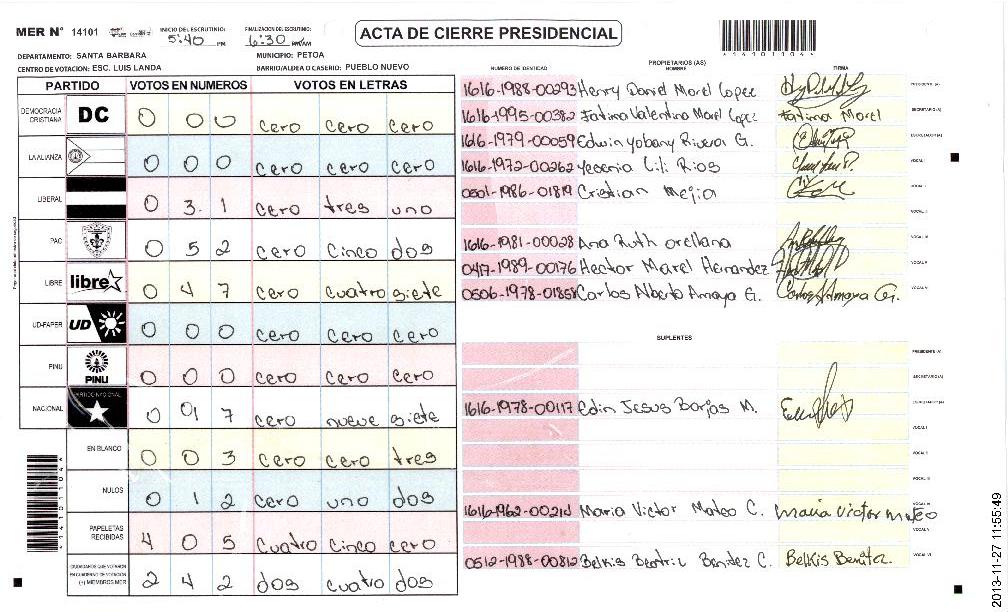 MER N° 14101 INICIO DEL ESCRUTINIO: 5:40 PM FINALIZACION DEL ESCRUTINIO: 6:30
ACTA DE CIERRE PRESIDENCIAL
DEPARTAMENTO: SANTA BARBARA MUNICIPIO: PETOA
CENTRO DE VOTACION: ESC. LUIS LANDA BARRIO/ALDEA O CASERIO: PUEBLO NUEVO
PARTIDO VOTOS EN NUMEROS VOTOS EN LETRAS
DEMOCRACIA CRISTIANA DC 0 0 0 cero cero cero
LA ALIANZA 0 0 0 cero cero cero
LIBERAL 0 3 1 cero tres uno
PAC 0 5 2 cero Cinco dos
LIBRE libre 0 4 7 cero cuatro siete
UD-FAPER UD 0 0 0 cero cero cero
PINU PINU 0 0 0 cero cero cero
NACIONAL 0 9 7 cero nueve siete
EN BLANCO 0 0 3 cero cero tres
NULOS 0 1 2 cero uno dos
PAPELETAS RECIBIDAS 4 0 5 Cuatro Cinco cero
CIUDADANOS QUE VOTARON EN CUADERNO DE VOTACION (+) MIEMBROS MER 2 4 2 dos cuatro dos
PROPIETARIOS (AS)
NUMERO DE IDENTIDAD NOMBRE FIRMA
1616-1988-00293 Henry Daniel Morel Lopez PRESIDENTE (A)
1616-1995-00382 Fatima Valentina Morel Lopez Fatima Morel SECRETARIO (A)
1616-1979-00059 Edwin yobany Rivera G. ESCRUTADOR (A)
1616-1972-00262 yecenia Lili Rios VOCAL I
0501-1986-01819 Cristian Mejia
1616-1981-00028 Ana Ruth orellana
0417-1989-00176 Hector Marel Hernandez
0506-1978-01858 Carlos Alberto Amaya G. Carlos A Amaya G.
SUPLENTES
PRESIDENTE (A)
SECRETARIO (A)
1616-1978-00117 Edin Jesus Borjas M. ESCRUTADOR (A)
VOCAL I
VOCAL II
VOCAL III
Maria Victor Mateo C. maria victor mateo
VOCAL V
0512-1988-00812 Belkis Beatriz Benitez C. Belkis Benitez. VOCAL VI
2013-11-27 11:55:49